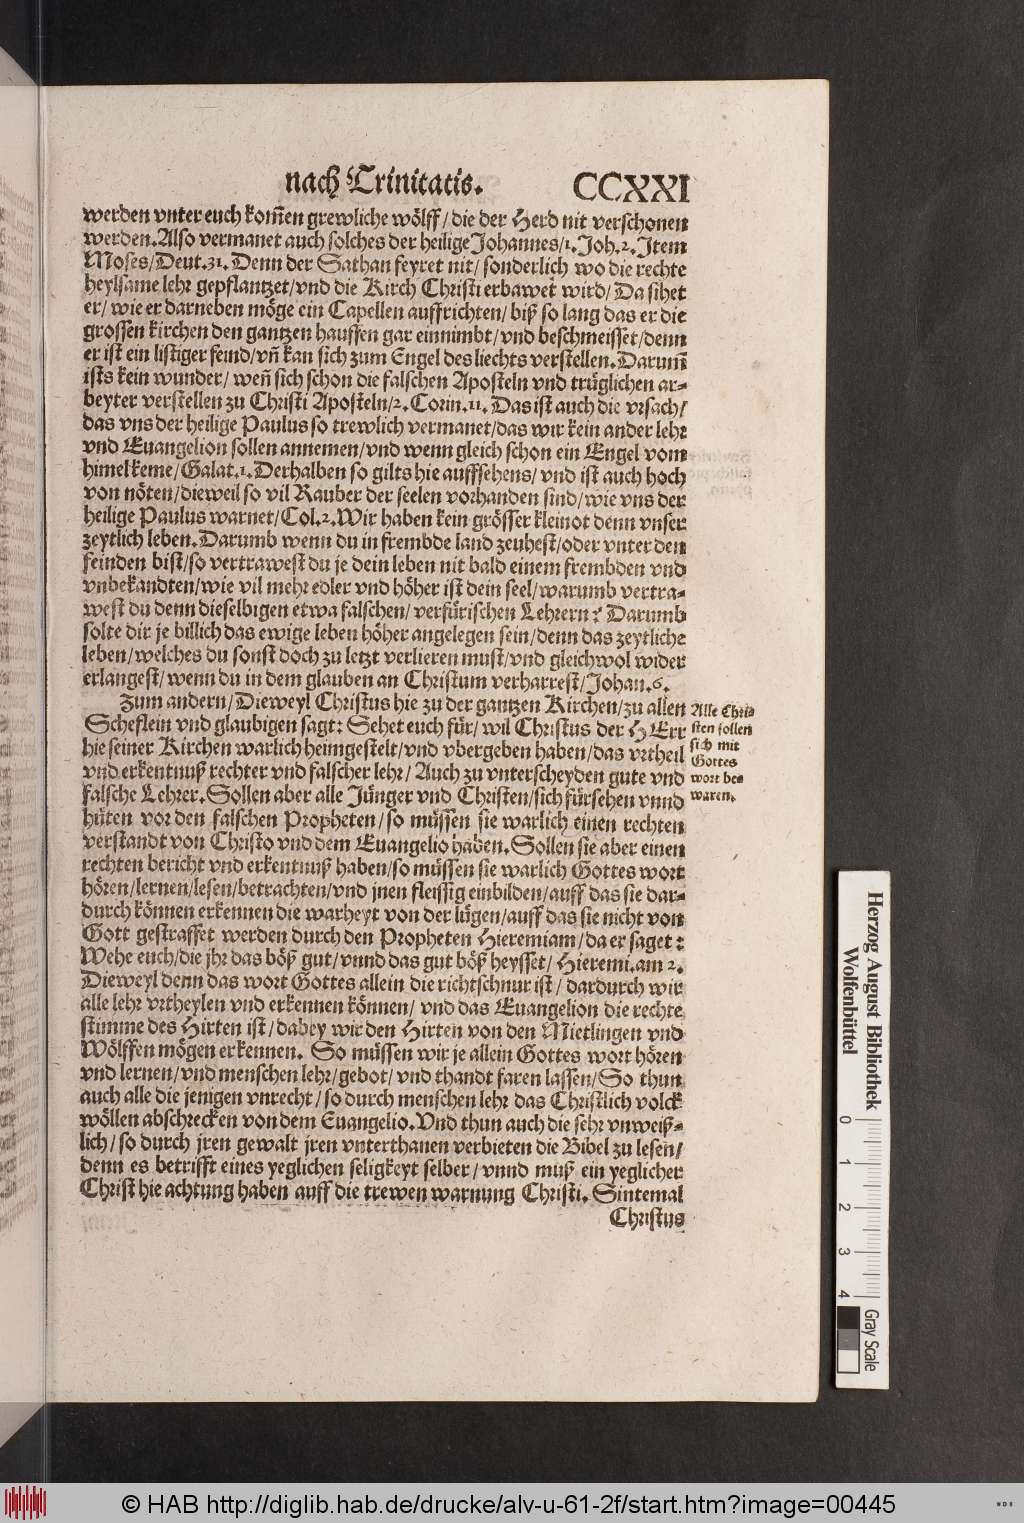 nach Trinitatis. CCXXI
werden vnter euch kom̃en grewliche wölff/ die der Herd nit verschonen
werden. Also vermanet auch solches der heilige Johannes/ 1. Joh. 2. Item
Moses/ Deut. 31. Denn der Sathan feyret nit/ sonderlich wo die rechte
heylsame lehr gepflantzet/ vnd die Kirch Christi erbawet wird/ Da sihet
er/ wie er darneben möge ein Capellen auffrichten/ biß so lang das er die
grossen kirchen den gantzen hauffen gar einnimbt/ vnd beschmeisset/ denn
er ist ein listiger feind/ vñ kan sich zum Engel des liechts verstellen. Darum̃
ists kein wunder/ weñ sich schon die falschen Aposteln vnd trüglichen ar-
beyter verstellen zu Christi Aposteln/ 2. Corin. 11. Das ist auch die vrsach/
das vns der heilige Paulus so trewlich vermanet/ das wir kein ander lehr
vnd Euangelion sollen annemen/ vnd wenn gleich schon ein Engel vom
himel keme/ Galat. 1. Derhalben so gilts hie auffsehens/ vnd ist auch hoch
von nöten/ dieweil so vil Rauber der seelen vorhanden sind/ wie vns der
heilige Paulus warnet/ Col. 2. Wir haben kein grösser kleinot denn vnser
zeytlich leben. Darumb wenn du in frembde land zeuhest/ oder vnter den
feinden bist/ so vertrawest du je dein leben nit bald einem frembden vnd
vnbekandten/ wie vil mehr edler vnd höher ist dein seel/ warumb vertra-
west du denn dieselbigen etwa falschen/ verfürischen Lehrern? Darumb
solte dir je billich das ewige leben höher angelegen sein/ denn das zeytliche
leben/ welches du sonst doch zu letzt verlieren must/ vnd gleichwol wider
erlangest/ wenn du in dem glauben an Christum verharrest/ Johan. 6.
Zum andern/ Dieweyl Christus hie zu der gantzen Kirchen/ zu allen
Scheflein vnd glaubigen sagt: Sehet euch für/ wil Christus der HErr
hie seiner Kirchen warlich heimgestelt/ vnd vbergeben haben/ das vrtheil
vnd erkentnuß rechter vnd falscher lehr/ Auch zu vnterscheyden gute vnd
falsche Lehrer. Sollen aber alle Jünger vnd Christen/ sich fürsehen vnnd
hüten vor den falschen Propheten/ so müssen sie warlich einen rechten
verstandt von Christo vnd dem Euangelio haben. Sollen sie aber einen
rechten bericht vnd erkentnuß haben/ so müssen sie warlich Gottes wort
hören/ lernen/ lesen/ betrachten/ vnd jnen fleissig einbilden/ auff das sie dar-
durch können erkennen die warheyt von der lügen/ auff das sie nicht von
Gott gestraffet werden durch den Propheten Hieremiam/ da er saget:
Wehe euch/ die jhr das böß gut/ vnnd das gut böß heysset/ Hieremi. am 2.
Dieweyl denn das wort Gottes allein die richtschnur ist/ dardurch wir
alle lehr vrtheylen vnd erkennen können/ vnd das Euangelion die rechte
stimme des Hirten ist/ dabey wir den Hirten von den Mietlingen vnd
Wölffen mögen erkennen. So müssen wir je allein Gottes wort hören
vnd lernen/ vnd menschen lehr/ gebot/ vnd thandt faren lassen/ So thun
auch alle die jenigen vnrecht/ so durch menschen lehr das Christlich volck
wöllen abschrecken von dem Euangelio. Vnd thun auch die sehr vnweiß-
lich/ so durch jren gewalt jren vnterthanen verbieten die Bibel zu lesen/
denn es betrifft eines yeglichen seligkeyt selber/ vnnd muß ein yeglicher
Christ hie achtung haben auff die trewen warnung Christi. Sintemal
Christus
Alle Chri-
sten sollen
sich mit
Gottes
wort be-
waren.
Herzog August Bibliothek
Wolfenbüttel
0 1 2 3 4
Gray Scale
© HAB http://diglib.hab.de/drucke/alv-u-61-2f/start.htm?image=00445
WDB